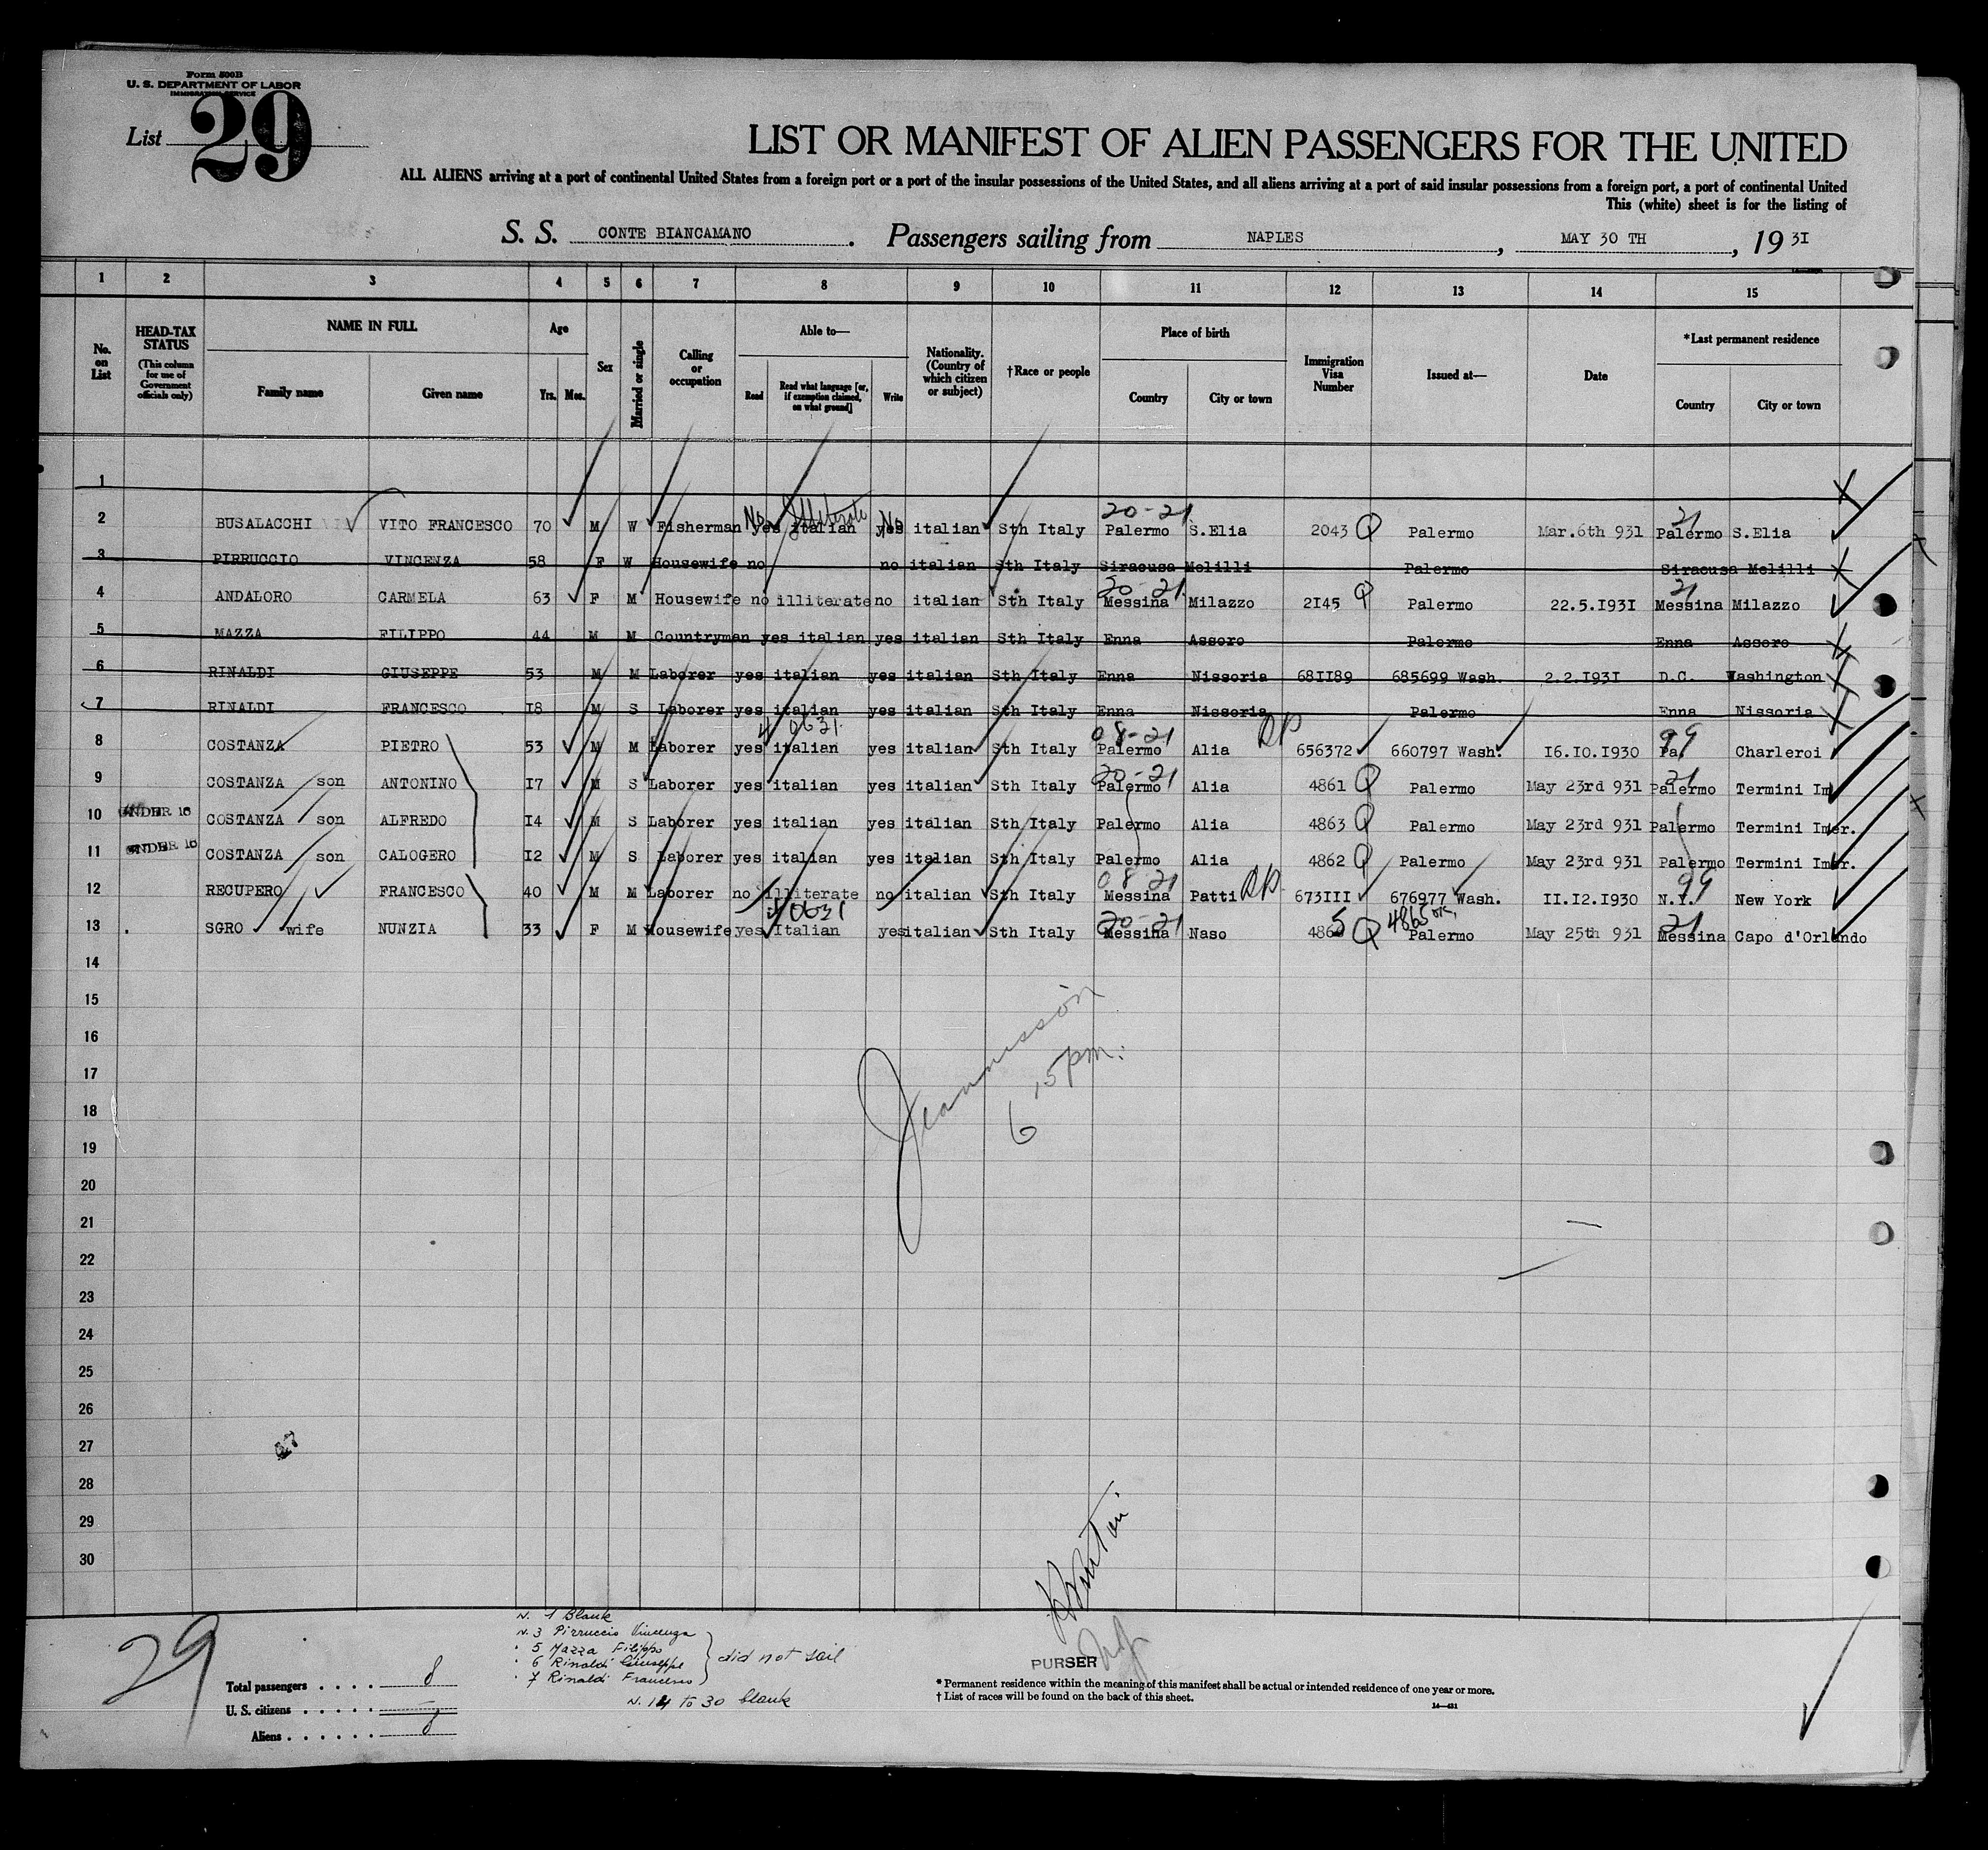 Form 500B
U. S. DEPARTMENT OF LABOR
IMMIGRATION SERVICE
List 29
LIST OR MANIFEST OF ALIEN PASSENGERS FOR THE UNITED
ALL ALIENS arriving at a port of continental United States from a foreign port or a port of the insular possessions of the United States, and all aliens arriving at a port of said insular possessions from a foreign port, a port of continental United
This (white) sheet is for the listing of
S. S. CONTE BIANCAMANO. Passengers sailing from NAPLES, MAY 30 TH, 19 31
1 2 3 4 5 6 7 8 9 10 11 12 13 14 15
No. on List
HEAD-TAX STATUS (This column for use of Government officials only)
NAME IN FULL
Family name Given name
Age
Yrs. Mos.
Sex
Married or single
Calling or occupation
Able to—
Read Read what language [or, if exemption claimed, on what ground] Write
Nationality. (Country of which citizen or subject)
†Race or people
Place of birth
Country City or town
Immigration Visa Number
Issued at—
Date
*Last permanent residence
Country City or town
1
20-21 21
No Illiterate No
2 BUSALACCHI VITO FRANCESCO 70 M W Fisherman yes italian yes italian Sth Italy Palermo S.Elia 2043 Q Palermo Mar.6th 931 Palermo S.Elia
3 PIRRUCCIO VINCENZA 58 F W Housewife no no italian Sth Italy Siracusa Melilli Palermo Siracusa Melilli
20-21 21
4 ANDALORO CARMELA 63 F M Housewife no illiterate no italian Sth Italy Messina Milazzo 2I45 Q Palermo 22.5.I93I Messina Milazzo
5 MAZZA FILIPPO 44 M M Countryman yes italian yes italian Sth Italy Enna Assoro Palermo Enna Assoro
6 RINALDI GIUSEPPE 53 M M Laborer yes italian yes italian Sth Italy Enna Nissoria 68II89 685699 Wash. 2.2.I93I D.C. Washington
7 RINALDI FRANCESCO I8 M S Laborer yes italian yes italian Sth Italy Enna Nissoria Palermo Enna Nissoria
4 0631 08-21 RP 99
8 COSTANZA PIETRO 53 M M Laborer yes italian yes italian Sth Italy Palermo Alia 656372 660797 Wash. I6.I0.I930 Pa. Charleroi
20-21 21
9 COSTANZA son ANTONINO I7 M S Laborer yes italian yes italian Sth Italy Palermo Alia 4861 Q Palermo May 23rd 931 Palermo Termini Im
10 UNDER 16 COSTANZA son ALFREDO I4 M S Laborer yes italian yes italian Sth Italy Palermo Alia 4863 Q Palermo May 23rd 931 Palermo Termini Imer.
11 UNDER 16 COSTANZA son CALOGERO I2 M S Laborer yes italian yes italian Sth Italy Palermo Alia 4862 Q Palermo May 23rd 931 Palermo Termini Imer.
08-21 RP 99
12 RECUPERO FRANCESCO 40 M M Laborer no illiterate no italian Sth Italy Messina Patti 673III 676977 Wash. II.I2.I930 N.Y. New York
0631 20-21 5 4865 21
13 SGRO wife NUNZIA 33 F M Housewife yes Italian yes italian Sth Italy Messina Naso 486 Q Palermo May 25th 931 Messina Capo d'Orlando
14
15
16
17
18
19
20
21
22
23
24
25
26
27
28
29
30
6 15 pm.
29
N. 1 Blank
N. 3 Pirruccio Vincenza
" 5 Mazza Filippo
" 6 Rinaldi Giuseppe
" 7 Rinaldi Francesco
did not sail
N. 14 to 30 blank
Total passengers . . . . 8
U. S. citizens . . . . . —
Aliens . . . . . . 8
PURSER
* Permanent residence within the meaning of this manifest shall be actual or intended residence of one year or more.
† List of races will be found on the back of this sheet.
14—431